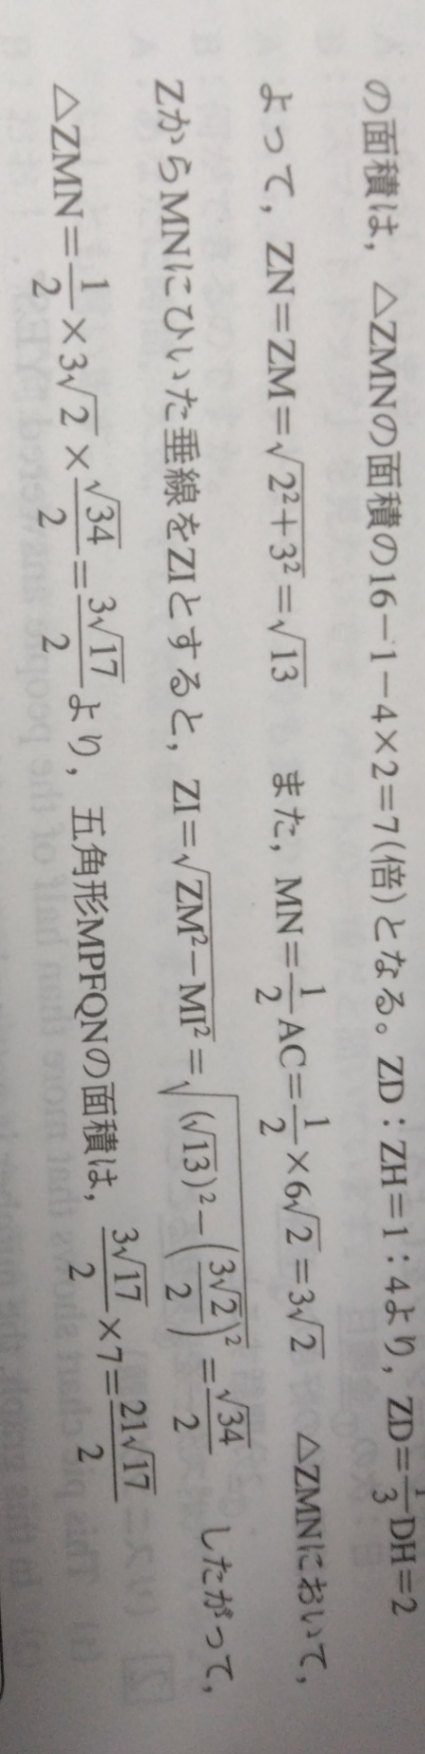 の面積は，△ZMNの面積の16－1－4×2＝7(倍)となる。ZD：ZH＝1：4より，ZD＝1/3DH＝2
よって，ZN＝ZM＝√(2²＋3²)＝√13　また，MN＝1/2AC＝1/2×6√2＝3√2　△ZMNにおいて，
ZからMNにひいた垂線をZIとすると，ZI＝√(ZM²－MI²)＝√((√13)²－(3√2/2)²)＝√34/2　したがって，
△ZMN＝1/2×3√2×√34/2＝3√17/2より，五角形MPFQNの面積は，3√17/2×7＝21√17/2